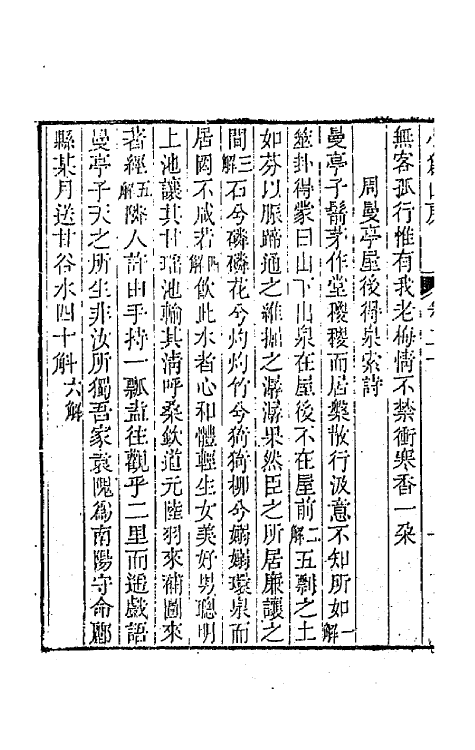 無客孤行惟有我老梅情不禁衝寒香一朶
周曼亭屋後得泉索詩
曼亭子鬅茅作堂稷稷而居槃散行汲意不知所如一解
筮卦得蒙曰山下出泉在屋後不在屋前二解五剽之土
如芬以脤蹄通之維掘之潺潺果然臣之所居廉讓之
間三解石兮磷磷花兮灼灼竹兮猗猗柳兮嫋嫋環泉而
居罔不咸若四解飲此水者心和體輕生女美好男聰明
上池讓其甘瑤池輸其清呼桑欽道元陸羽來補圖來
著經五解隣人許由手持一瓢盍往觀乎二里而遙戲語
曼亭子天之所生非汝所獨吾家袁隗爲南陽守命酈
縣某月送甘谷水四十斛六解